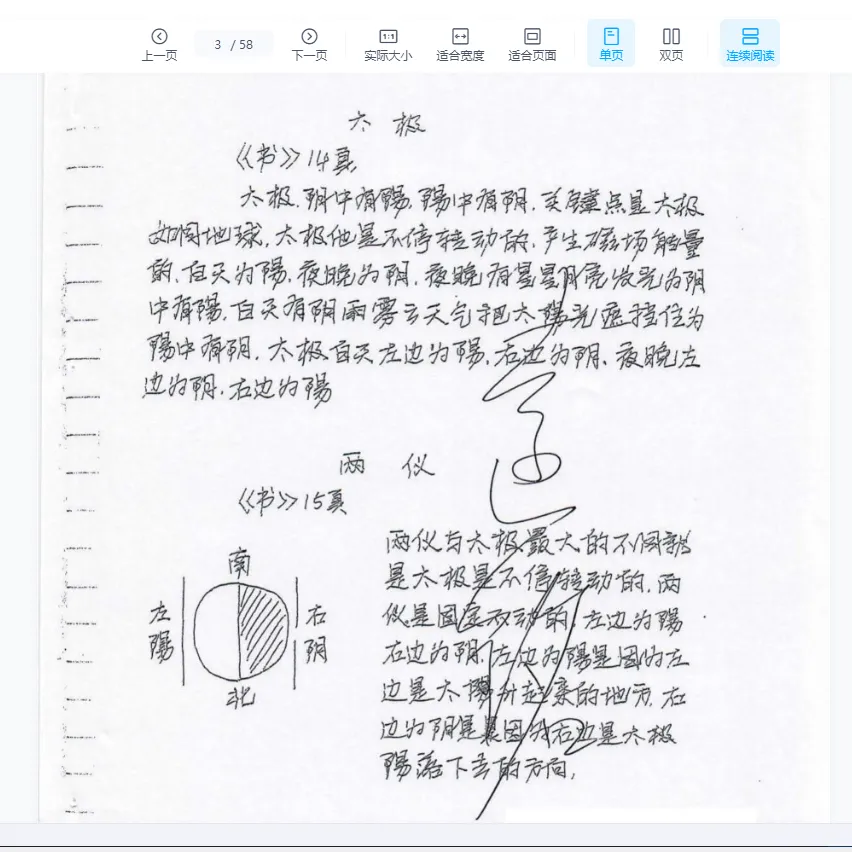 上一页
3 / 58
下一页
1:1
实际大小
适合宽度
适合页面
单页
双页
连续阅读
太极
《书》14頁
太极，阴中有陽，陽中有阴，关键点是太极
如同地球，太极他是不停转动的，产生磁场能量
的，白天为陽，夜晚为阴，夜晚有星星月亮发光为阴
中有陽，白天有阴雨雾云天气把太陽光遮挡住为
陽中有阴，太极白天左边为陽，右边为阴，夜晚左
边为阴，右边为陽
两仪
《书》15頁
南
左陽
右阴
北
两仪与太极最大的不同就
是太极是不停转动的，两
仪是固定不动的，左边为陽
右边为阴，左边为陽是因为左
边是太陽升起来的地方，右
边为阴是因为右边是太极
陽落下去的方向，